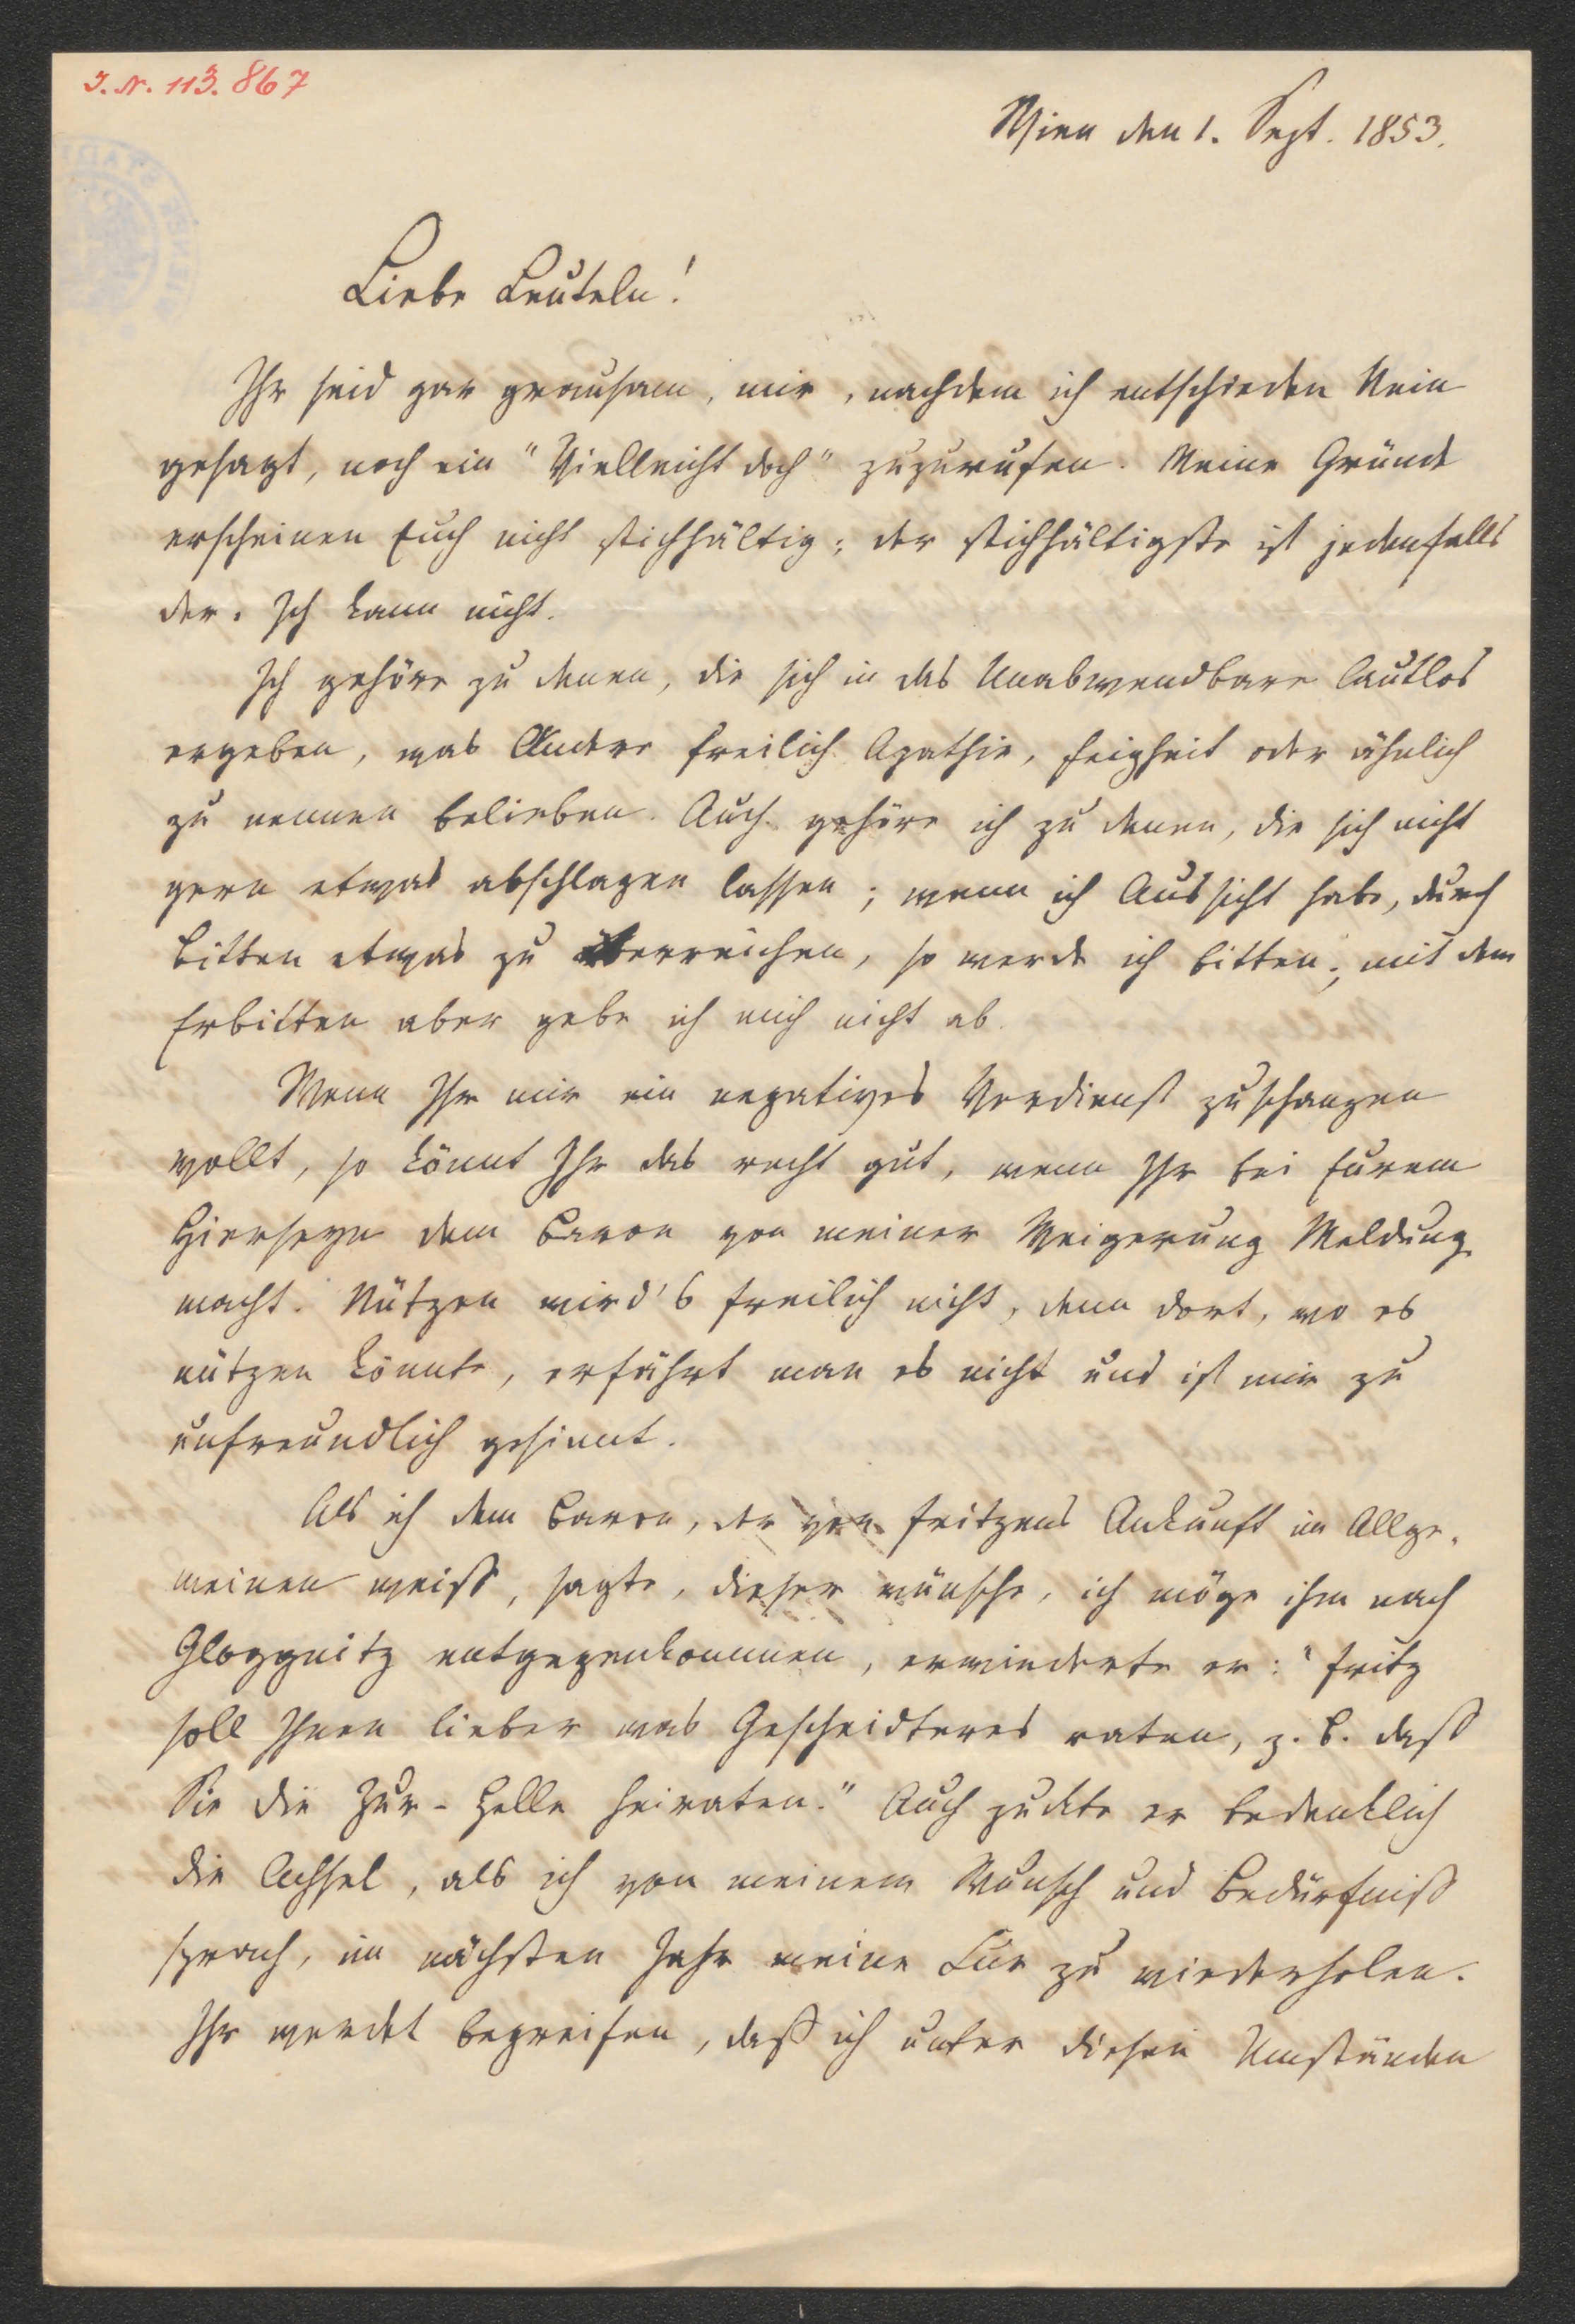 I. N. 113.867
Wien den 1. Sept. 1853.
Liebe Leuteln!
Ihr seid gar grausam, mir, nachdem ich entschieden Nein
gesagt, noch ein "Vielleicht doch" zuzurufen. Meine Gründe
erscheinen Euch nicht stichhältig; der stichhältigste ist jedenfalls
der: Ich kann nicht.
Ich gehöre zu denen, die sich in das Unabwendbare lautlos
ergeben, was Andere freilich Apathie, Feigheit oder ähnlich
zu nennen belieben. Auch gehöre ich zu denen, die sich nicht
gern etwas abschlagen lassen; wenn ich Aussicht habe, durch
Bitten etwas zu erreichen, so werde ich bitten; mit dem
Erbitten aber gebe ich mich nicht ab.
Wenn Ihr mir ein negatives Verdienst zuschanzen
wollt, so könnt Ihr das recht gut, wenn Ihr bei Eurem
Hierseyn dem Baron von meiner Weigerung Meldung
macht. Nützen wird's freilich nicht, denn dort, wo es
nützen könnte, erfährt man es nicht und ist mir zu
unfreundlich gesinnt.
Als ich dem Baron, der von Fritzens Ankunft im Allge-
meinen weiß, sagte, dieser wünsche, ich möge ihm nach
Gloggnitz entgegenkommen, erwiederte er: "Fritz
soll Ihnen lieber was Gescheidteres raten, z. B. daß
Sie die Zur-Helle heiraten." Auch zuckte er bedenklich
die Achsel, als ich von meinem Wunsch und Bedürfniß
sprach, im nächsten Jahr meine Cur zu wiederholen.
Ihr werdet begreifen, daß ich unter diesen Umständen